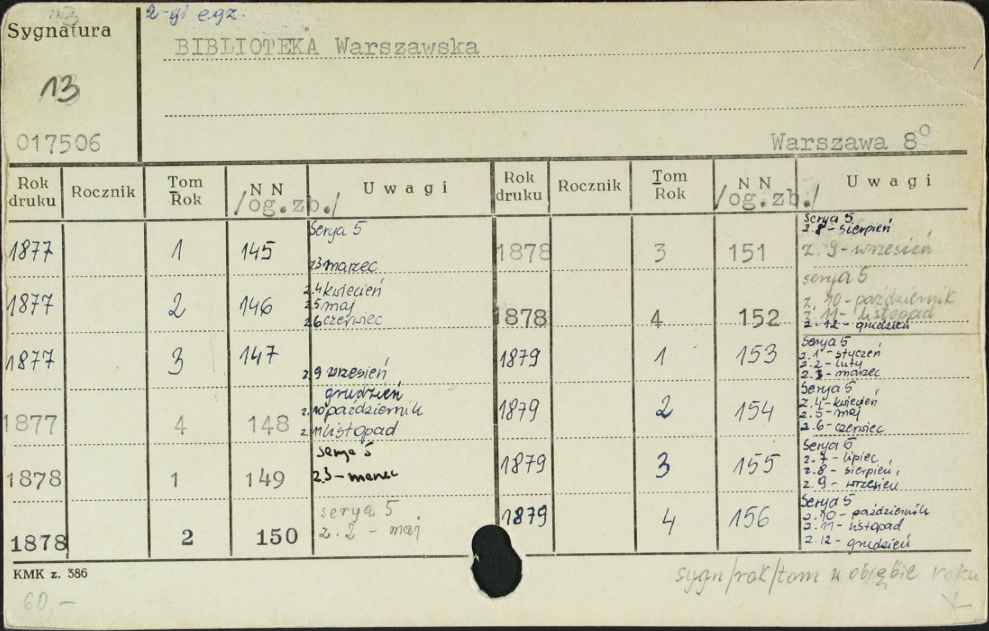 2-gi egz.
Sygnatura
BIBLIOTEKA Warszawska
13
017506
Warszawa 8°
Rok druku Rocznik Tom Rok N N /og.zb./ Uwagi Rok druku Rocznik Tom Rok N N /og.zb./ Uwagi
1877 1 145 Serya 5
z3 marzec
1877 2 146 z.4 kwiecień
z5 maj
z6 czerwiec
1877 3 147 z9 wrzesień
1877 4 148 grudzień
z.10 październik
z.11 listopad
1878 1 149 Serya 5
z3 – marzec
1878 2 150 serya 5
z. 2 – maj
1878 3 151 Serya 5
z.8 – sierpień
z. 9 – wrzesień
1878 4 152 serya 5
z. 10 – październik
z. 11 – listopad
z. 12 – grudzień
1879 1 153 Serya 5
z.1 – styczeń
z.2 – luty
z.3 – marzec
1879 2 154 Serya 5
z.4 – kwiecień
z.5 – maj
z.6 – czerwiec
1879 3 155 Serya 5
z.7 – lipiec
z.8 – sierpień
z.9 – wrzesień
1879 4 156 Serya 5
z.10 – październik
z.11 – listopad
z.12 – grudzień
KMK z. 386
60,–
sygn/rok/tom w obrębie roku